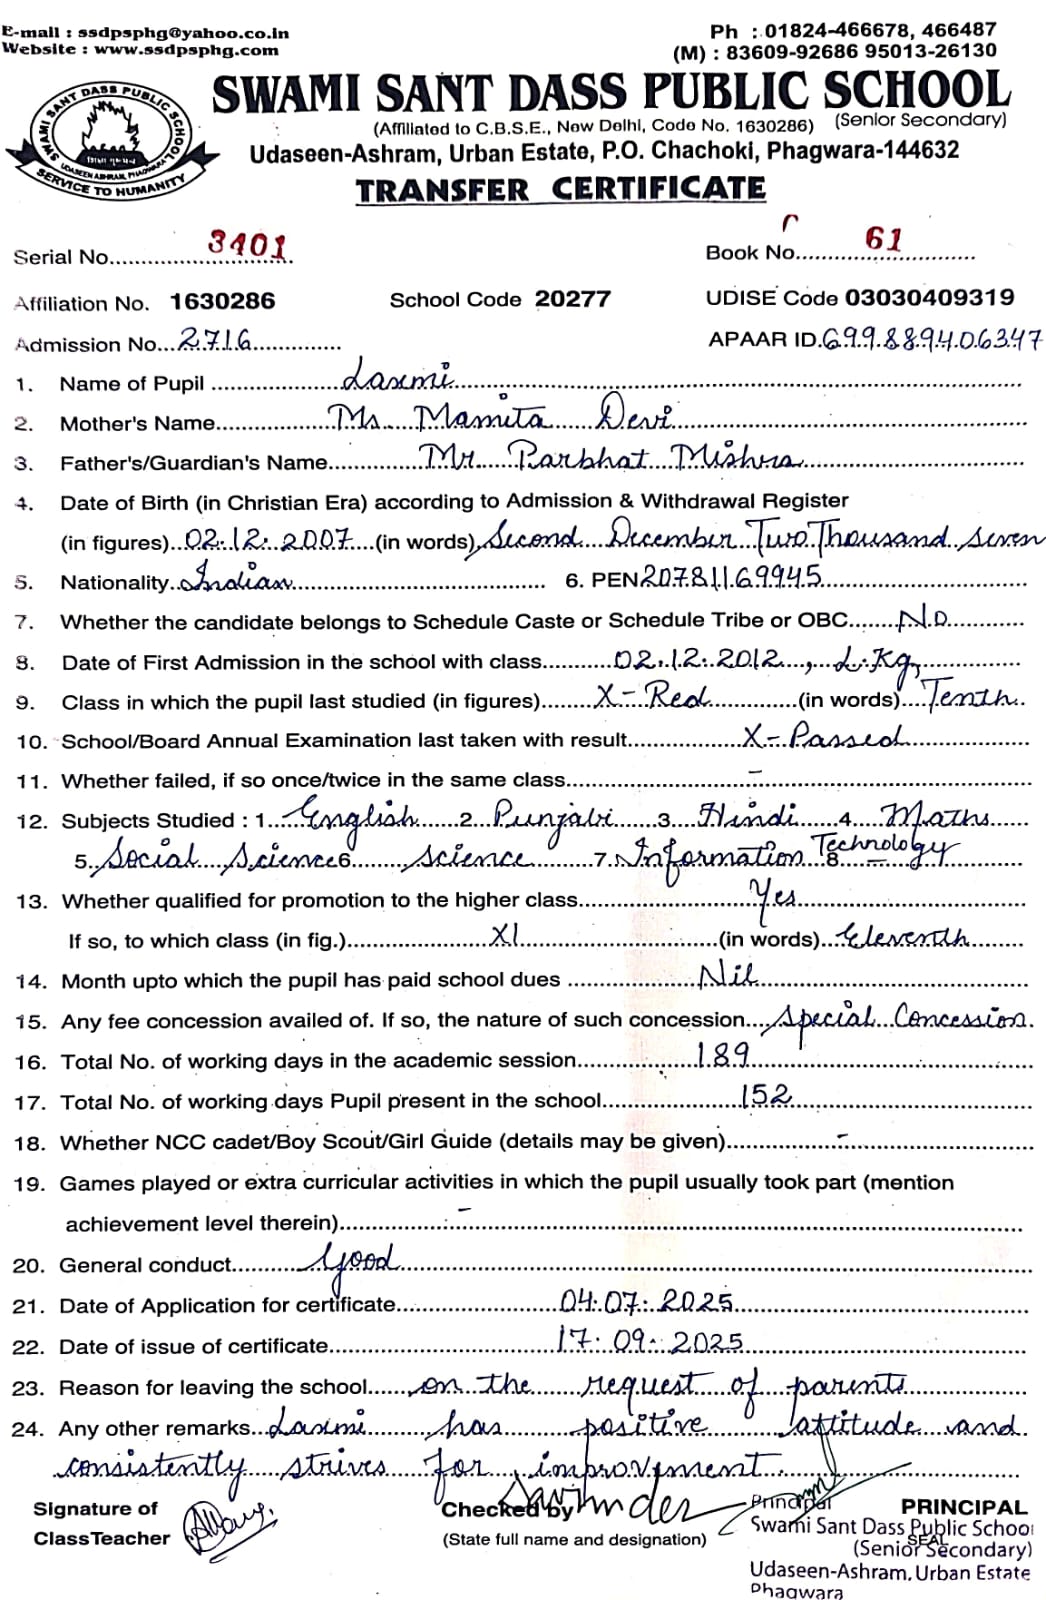 E-mail : ssdpsphg@yahoo.co.in
Website : www.ssdpsphg.com
Ph : 01824-466678, 466487
(M) : 83609-92686 95013-26130
SWAMI SANT DASS PUBLIC SCHOOL
(Affiliated to C.B.S.E., New Delhi, Code No. 1630286) (Senior Secondary)
Udaseen-Ashram, Urban Estate, P.O. Chachoki, Phagwara-144632
SWAMI SANT DASS PUBLIC SCHOOL
UDASEEN ASHRAM, PHAGWARA
SERVICE TO HUMANITY
TRANSFER CERTIFICATE
Serial No. 3401 Book No. 61
Affiliation No. 1630286 School Code 20277 UDISE Code 03030409319
Admission No. 2716 APAAR ID. 699889406347
1. Name of Pupil Laxmi
2. Mother's Name Ms Mamita Devi
3. Father's/Guardian's Name Mr. Parbhat Mishra
4. Date of Birth (in Christian Era) according to Admission & Withdrawal Register
(in figures) 02.12.2007 (in words) Second December Two Thousand Seven
5. Nationality Indian 6. PEN 20781169945
7. Whether the candidate belongs to Schedule Caste or Schedule Tribe or OBC No
8. Date of First Admission in the school with class 02.12.2012, L.Kg
9. Class in which the pupil last studied (in figures) X-Red (in words) Tenth
10. School/Board Annual Examination last taken with result X-Passed
11. Whether failed, if so once/twice in the same class -
12. Subjects Studied : 1. English 2. Punjabi 3. Hindi 4. Maths
5. Social Science 6. Science 7. Information Technology 8. -
13. Whether qualified for promotion to the higher class Yes
If so, to which class (in fig.) XI (in words) Eleventh
14. Month upto which the pupil has paid school dues Nil
15. Any fee concession availed of. If so, the nature of such concession Special Concession.
16. Total No. of working days in the academic session 189
17. Total No. of working days Pupil present in the school 152
18. Whether NCC cadet/Boy Scout/Girl Guide (details may be given) -
19. Games played or extra curricular activities in which the pupil usually took part (mention
achievement level therein) -
20. General conduct Good
21. Date of Application for certificate 04.07.2025
22. Date of issue of certificate 17.09.2025
23. Reason for leaving the school on the request of parents
24. Any other remarks Laxmi has positive attitude and
consistently strives for improvement.
Signature of
Class Teacher
Checked by
(State full name and designation)
Davinder
PRINCIPAL
SEAL
Principal
Swami Sant Dass Public School
(Senior Secondary)
Udaseen-Ashram, Urban Estate
Phagwara